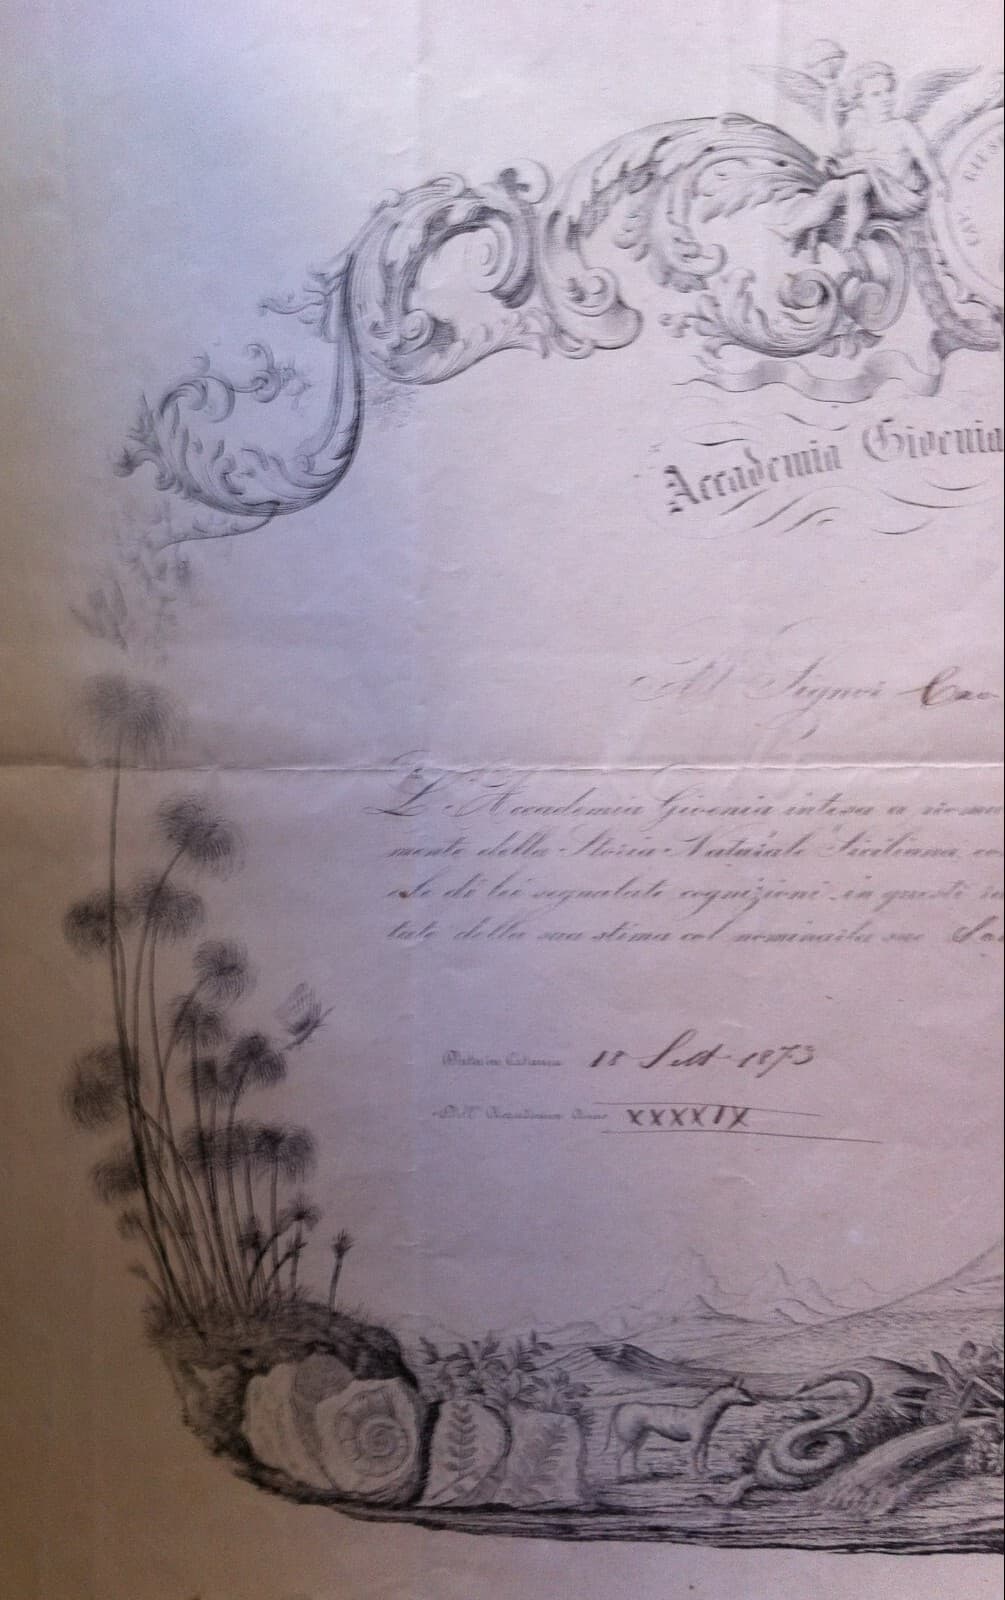 GIENI
Accademia Gioenia
Al Signor Cav
L'Accademia Gioenia intesa a
mento della Storia Naturale Siciliana, co
di lei segnalate cognizioni in questi
della sua stima col nominarla suo So
Data in Catania 18 Sett. 1873
Dell' Accademia Anno XXXXIX